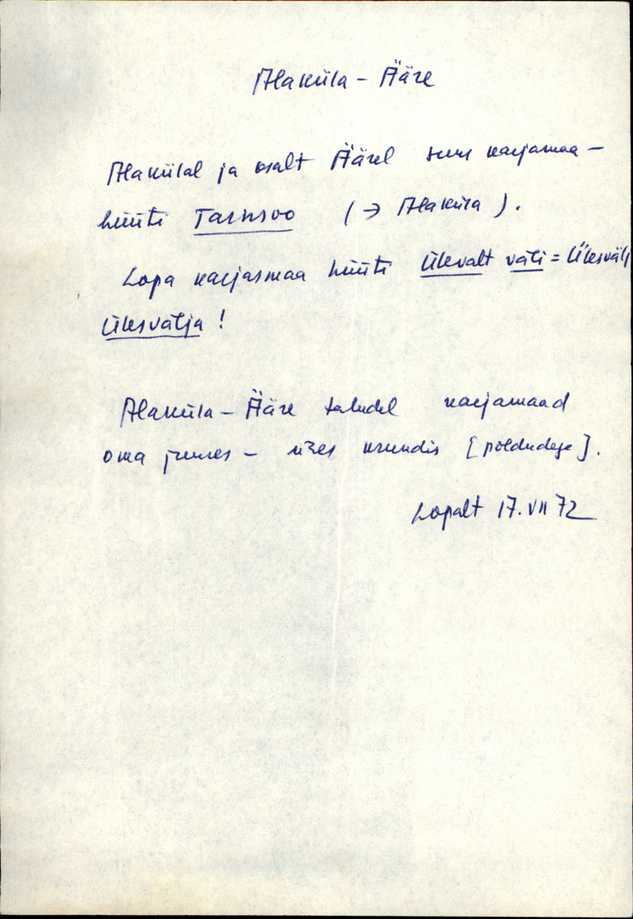 Alaküla – Ääre
Alakülal ja osalt Äärel suur karjamaa –
hüüti Tarnsoo (→ Alaküla).
Lopa karjasmaa hüüti Ülevalt väli = Ülesväli
Ülesvälja!
Alaküla – Ääre taludel karjamaad
oma juures – ühes krundis [põldudega].
Lopalt 17. VII 72